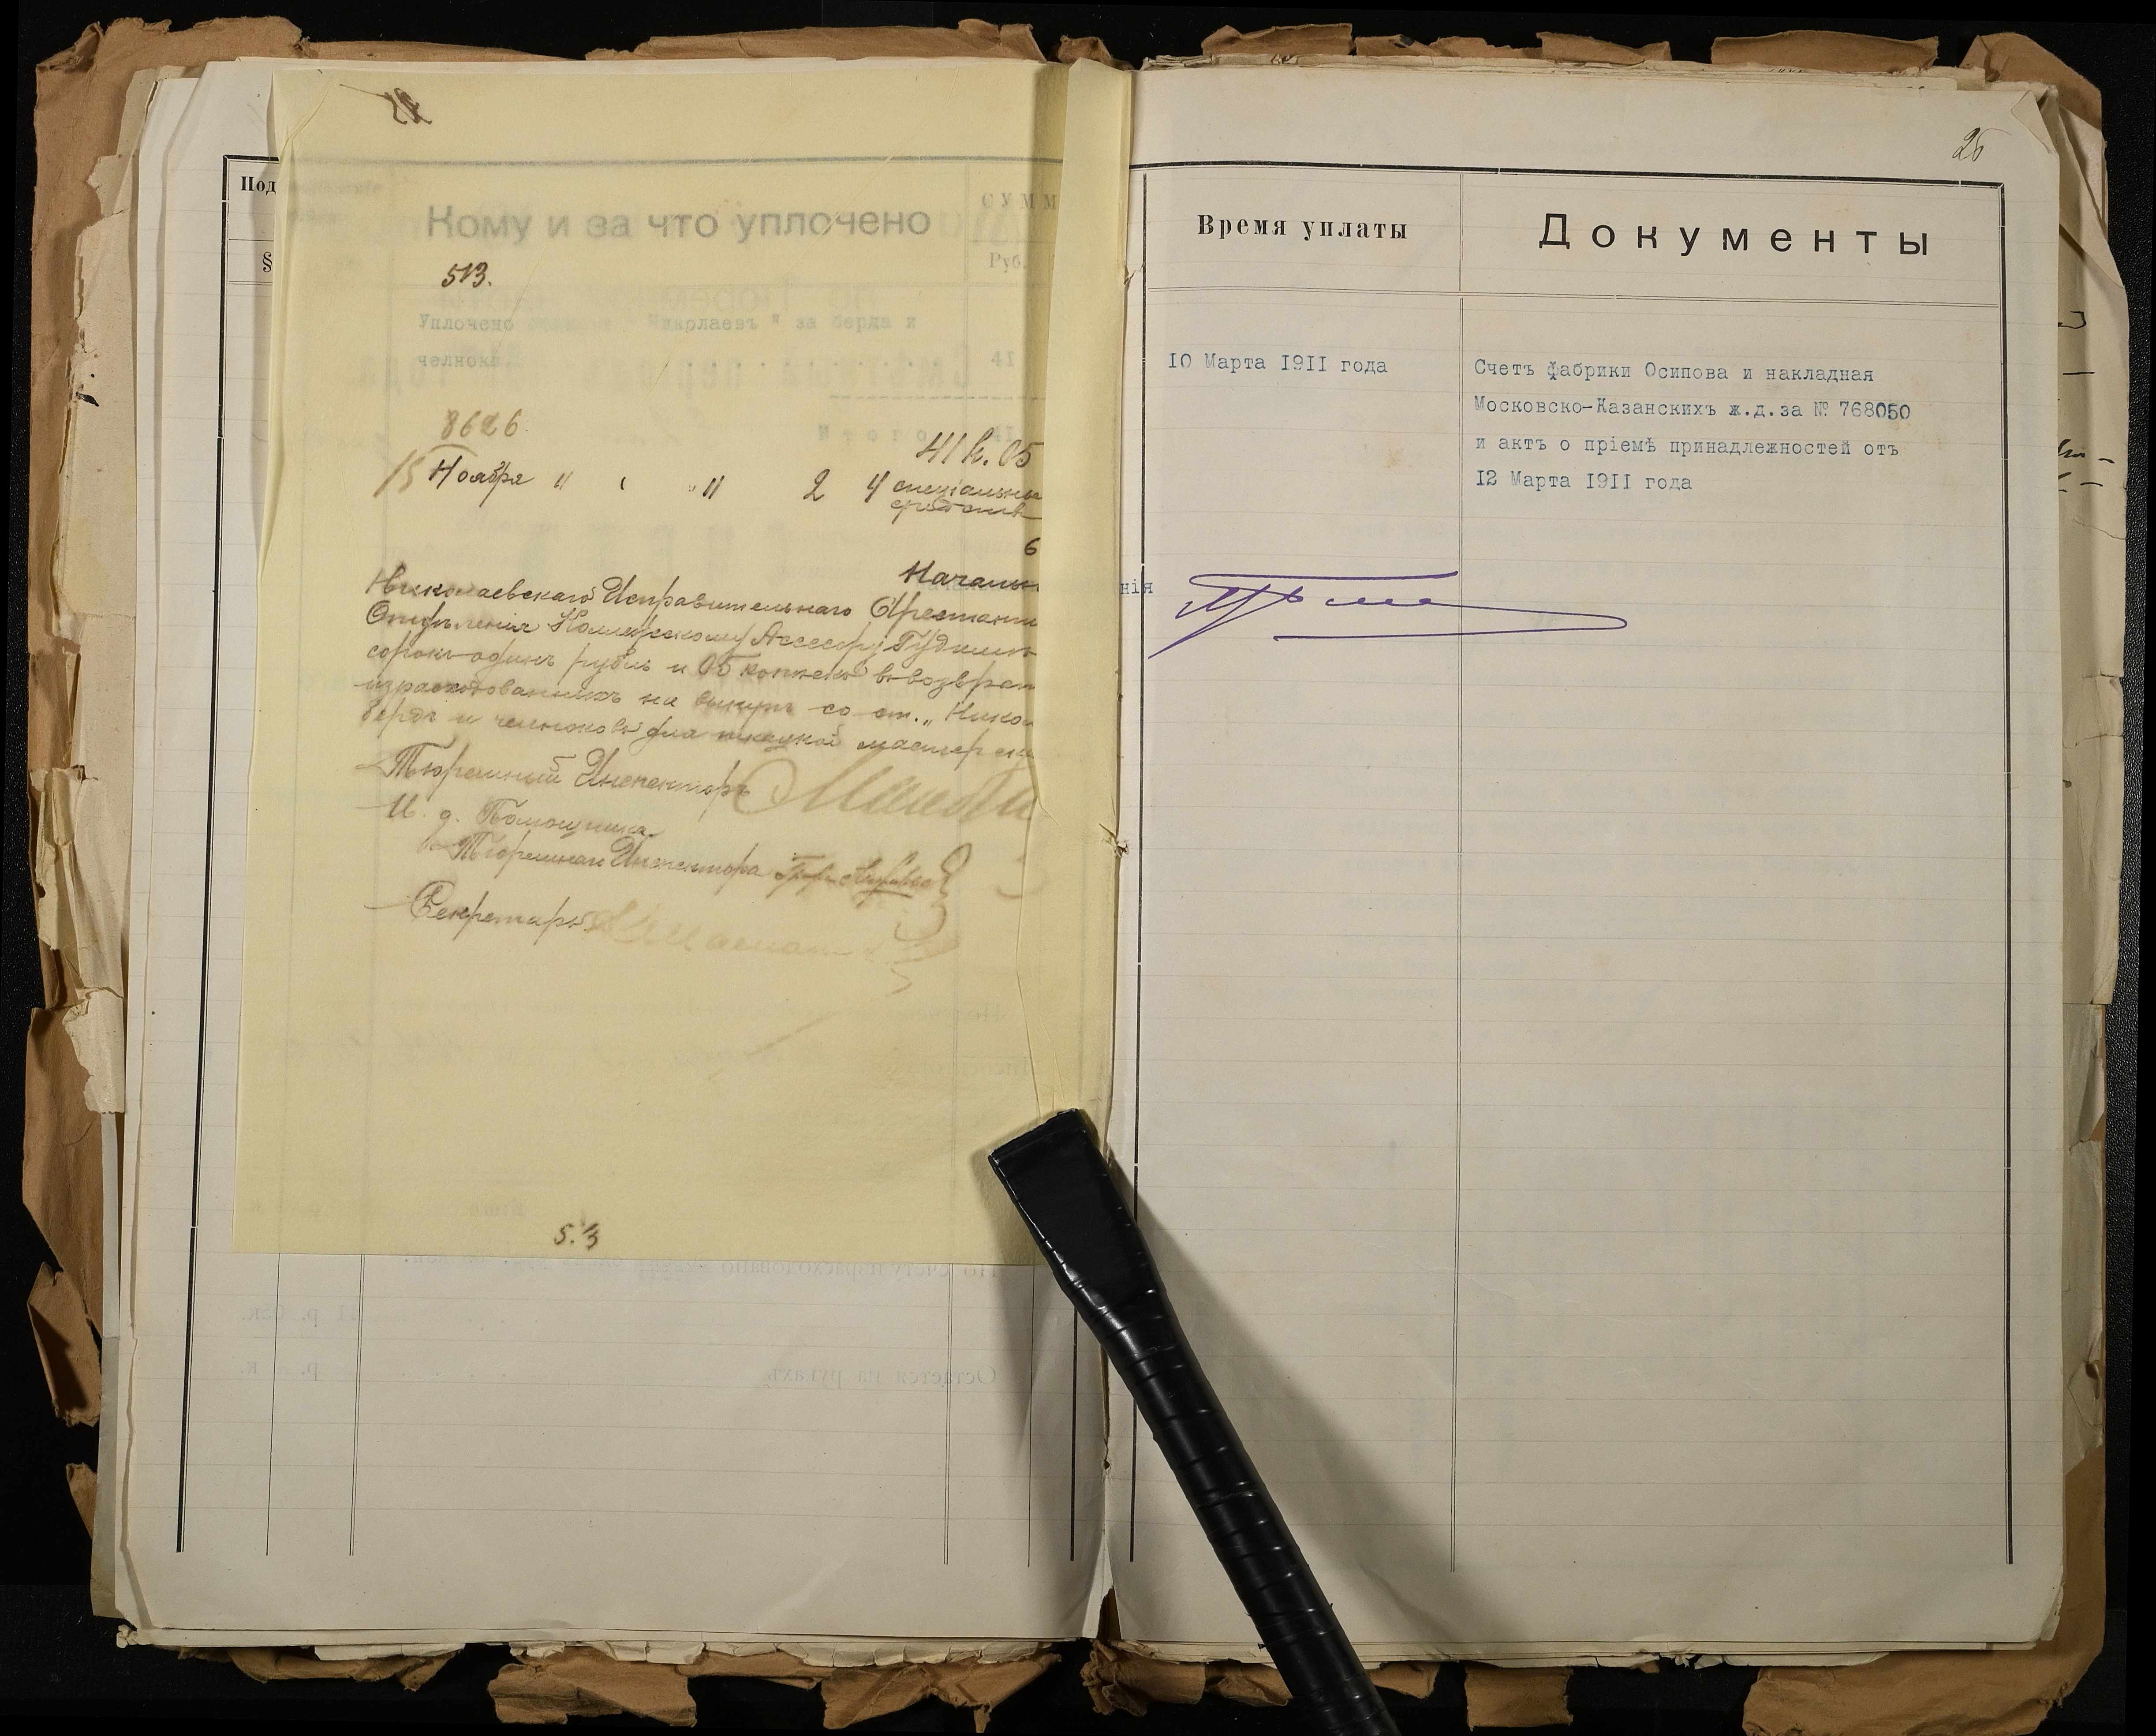 Под
§
Кому и за что уплочено
СУММ
Руб.
513.
Уплочено "Николаевъ" за берда и
челнока 41
8626
Итого 41
41 к. 05
15 Ноября " " 2 4 спеціальны
средствъ
6
Начальн
Николаевскаго Исправительнаго Арестант
Отдѣленія Коллежскому Ассесору Гудкину
сорокъ одинъ рубль и 05 копѣекъ въ возврат
израсходованныхъ на выкупъ со ст. „Никол
бердъ и челноковъ для ткацкой мастерск
Тюремный Инспекторъ
И. д. Помощника
Тюремнаго Инспектора
Секретарь
5.3
26
Время уплаты
Документы
10 Марта 1911 года
Счетъ фабрики Осипова и накладная
Московско-Казанскихъ ж.д.за № 768050
и актъ о пріемѣ принадлежностей отъ
12 Марта 1911 года
нія